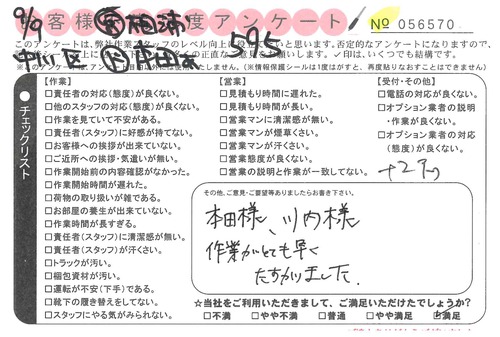 お客様満足度アンケート
No 056570
9/9
595
このアンケートは、弊社作業スタッフのレベル向上に役立て
いと思います。否定的なアンケートになりますので、
正直なご意見をお願いします。✓印は、いくつでも結構です。
(※このアンケートは
(※情報保護シールは1度はがすと、再度貼りなおすことはできません)
チェックリスト
【作業】
□責任者の対応(態度)が良くない。
□他のスタッフの対応(態度)が良くない。
□作業を見ていて不安がある。
□責任者(スタッフ)に好感が持てない。
□お客様への挨拶が出来ていない。
□ご近所への挨拶・気遣いが無い。
□作業開始前の内容確認がなかった。
□作業開始時間が遅れた。
□荷物の取り扱いが雑である。
□お部屋の養生が出来ていない。
□作業時間が長すぎる。
□責任者(スタッフ)に清潔感が無い。
□責任者(スタッフ)が汗くさい。
□トラックが汚い。
□梱包資材が汚い。
□運転が不安(下手)である。
□靴下の履き替えをしてない。
□スタッフにやる気がみられない。
【営業】
□見積もり時間に遅れた。
□見積もり時間が長い。
□営業マンに清潔感が無い。
□営業マンが煙草くさい。
□営業マンが汗くさい。
□営業態度が良くない。
□営業の説明と作業が一致してない。
【受付・その他】
□電話の対応が良くない。
□オプション業者の説明
・作業が良くない。
□オプション業者の対応
(態度)が良くない。
その他、ご意見・ご要望等ありましたらお書き下さい。
本田様、川内様
作業がとても早く
たすかりました。
☆当社をご利用いただきまして、ご満足いただけたでしょうか?
□不満 □やや不満 □普通 □やや満足 ☑満足